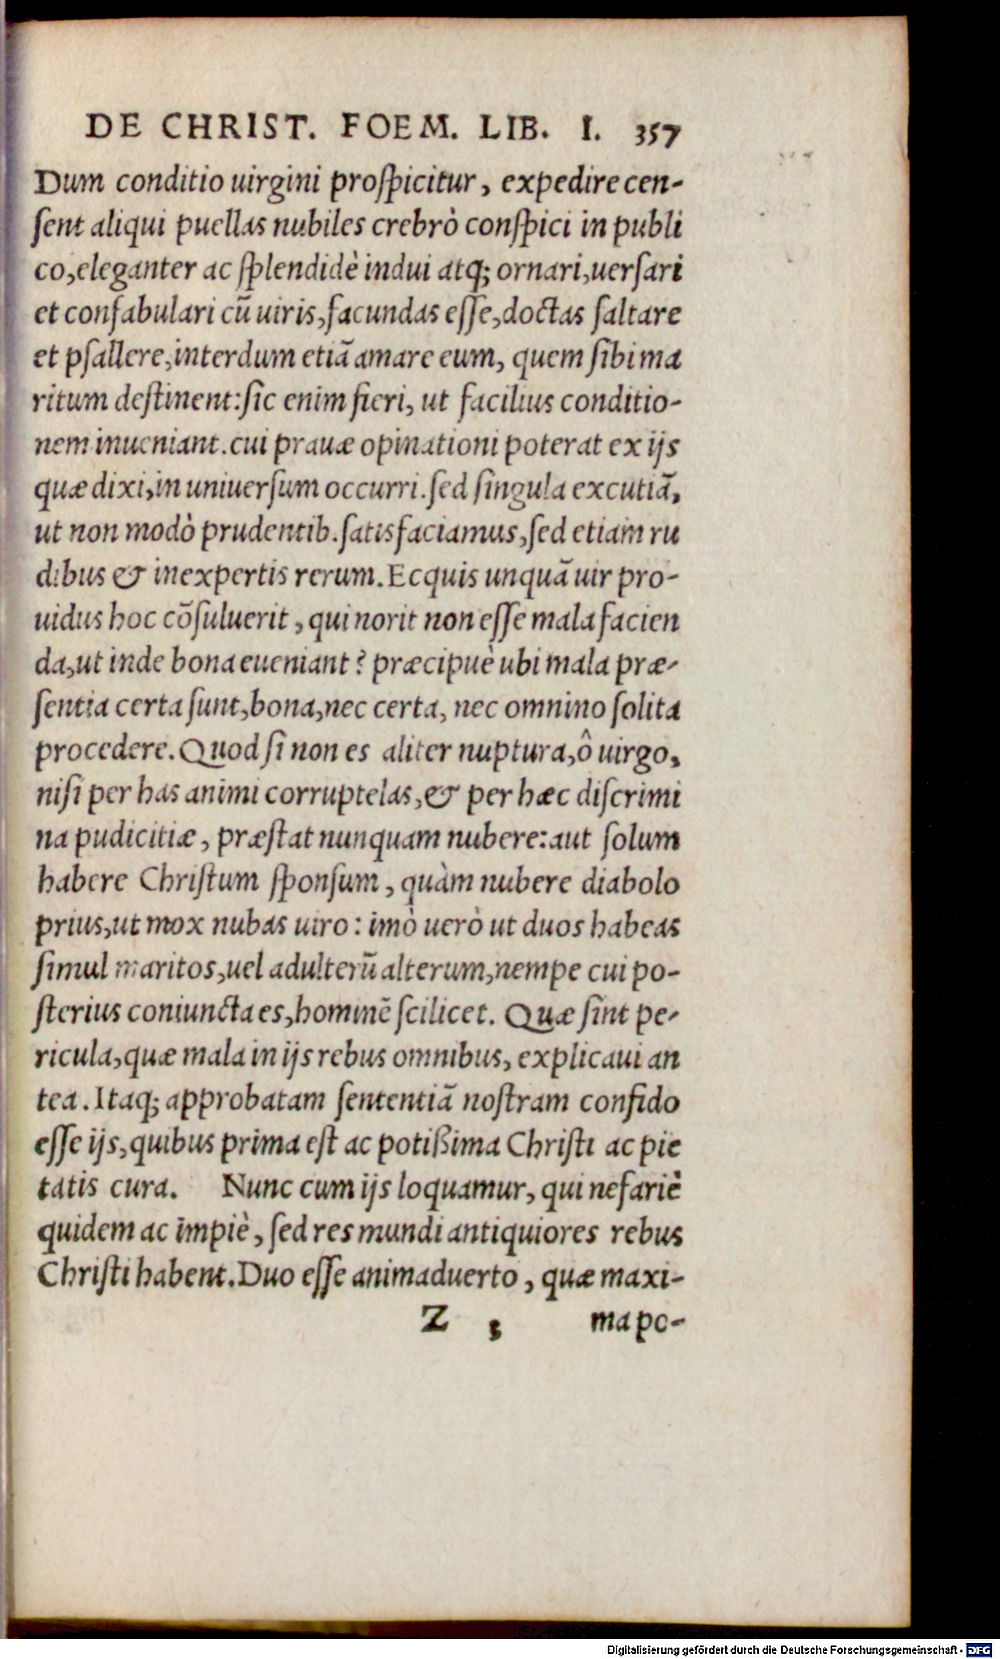 DE CHRIST. FOEM. LIB. I. 357
Dum conditio uirgini proſpicitur, expedire cen-
ſent aliqui puellas nubiles crebrò conſpici in publi
co, eleganter ac ſplendidè indui atq; ornari, uerſari
et confabulari cũ uiris, facundas eſſe, doctas ſaltare
et pſallere, interdum etiã amare eum, quem ſibi ma
ritum deſtinent: ſic enim fieri, ut facilius conditio-
nem inueniant. cui prauæ opinationi poterat ex ijs
quæ dixi, in uniuerſum occurri. ſed ſingula excutiã,
ut non modò prudentib. ſatisfaciamus, ſed etiam ru
dibus & inexpertis rerum. Ecquis unquã uir pro-
uidus hoc cõſuluerit, qui norit non eſſe mala facien
da, ut inde bona eueniant? præcipuè ubi mala præ-
ſentia certa ſunt, bona, nec certa, nec omnino ſolita
procedere. Quod ſi non es aliter nuptura, ô uirgo,
niſi per has animi corruptelas, & per hæc diſcrimi
na pudicitiæ, præſtat nunquam nubere: aut ſolum
habere Chriſtum ſponſum, quàm nubere diabolo
prius, ut mox nubas uiro: imò uerò ut duos habeas
ſimul maritos, uel adulterũ alterum, nempe cui po-
ſterius coniuncta es, hominẽ ſcilicet. Quæ ſint pe-
ricula, quæ mala in ijs rebus omnibus, explicaui an
tea. Itaq; approbatam ſententiã noſtram confido
eſſe ijs, quibus prima eſt ac potißima Chriſti ac pie
tatis cura. Nunc cum ijs loquamur, qui nefariè
quidem ac impiè, ſed res mundi antiquiores rebus
Chriſti habent. Duo eſſe animaduerto, quæ maxi-
Z 3 ma pe-
Digitalisierung gefördert durch die Deutsche Forschungsgemeinschaft - DFG